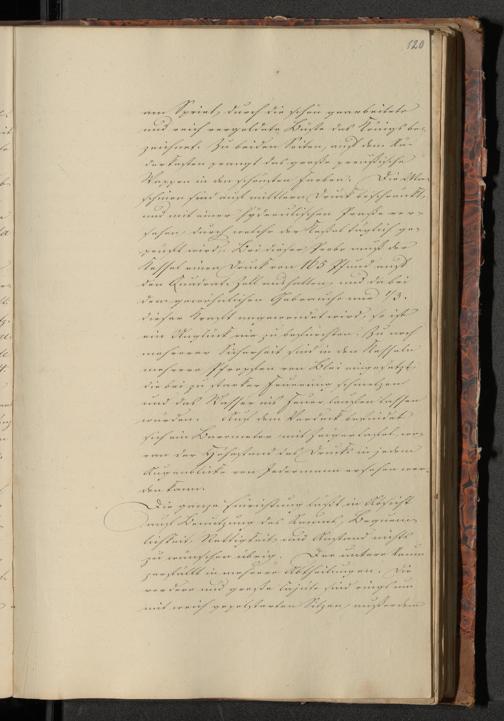 120
am Spriet, durch die schön gearbeitete
und reich vergoldete Büste des Königs be-
zeichnet. Zu beiden Seiten, auf dem Rä-
derkasten prangt das große preußische
Wappen in den schönsten Farben. Die Ma-
schinen sind auf mittlern Druck beschränkt,
und mit einer hydraulischen Presse ver-
sehen, durch welche der Kessel täglich ge-
prüft wird. Bei dieser Probe muß der
Kessel einen Druck von 165 Pfund auf
den Quadrat Zoll aushalten, und da bei
dem gewöhnlichen Gebrauche nur 1/3.
dieser Kraft angewendet wird, so ist
ein Unglück nie zu befürchten. Zu noch
mehrerer Sicherheit sind in den Kesseln
mehrere Pfropfen von Blei eingesetzt,
die bei zu starker Feuerung schmelzen
und das Wasser ins Feuer laufen lassen
würden. Auf dem Verdeck befindet
sich ein Barometer mit Zeigertafel, wo-
ran der Höhestand des Drucks in jedem
Augenblicke von Jedermann ersehen wer-
den kann.
Die ganze Einrichtung läßt in Absicht
auf Benutzung des Raums, Bequem-
lichkeit, Nettigkeit und Anstand nichts
zu wünschen übrig. Der untere Raum
zerfällt in mehrere Abtheilungen. Die
vordere und große Cajüte sind ringsum
mit weich gepolsterten Sitzen, außerdem